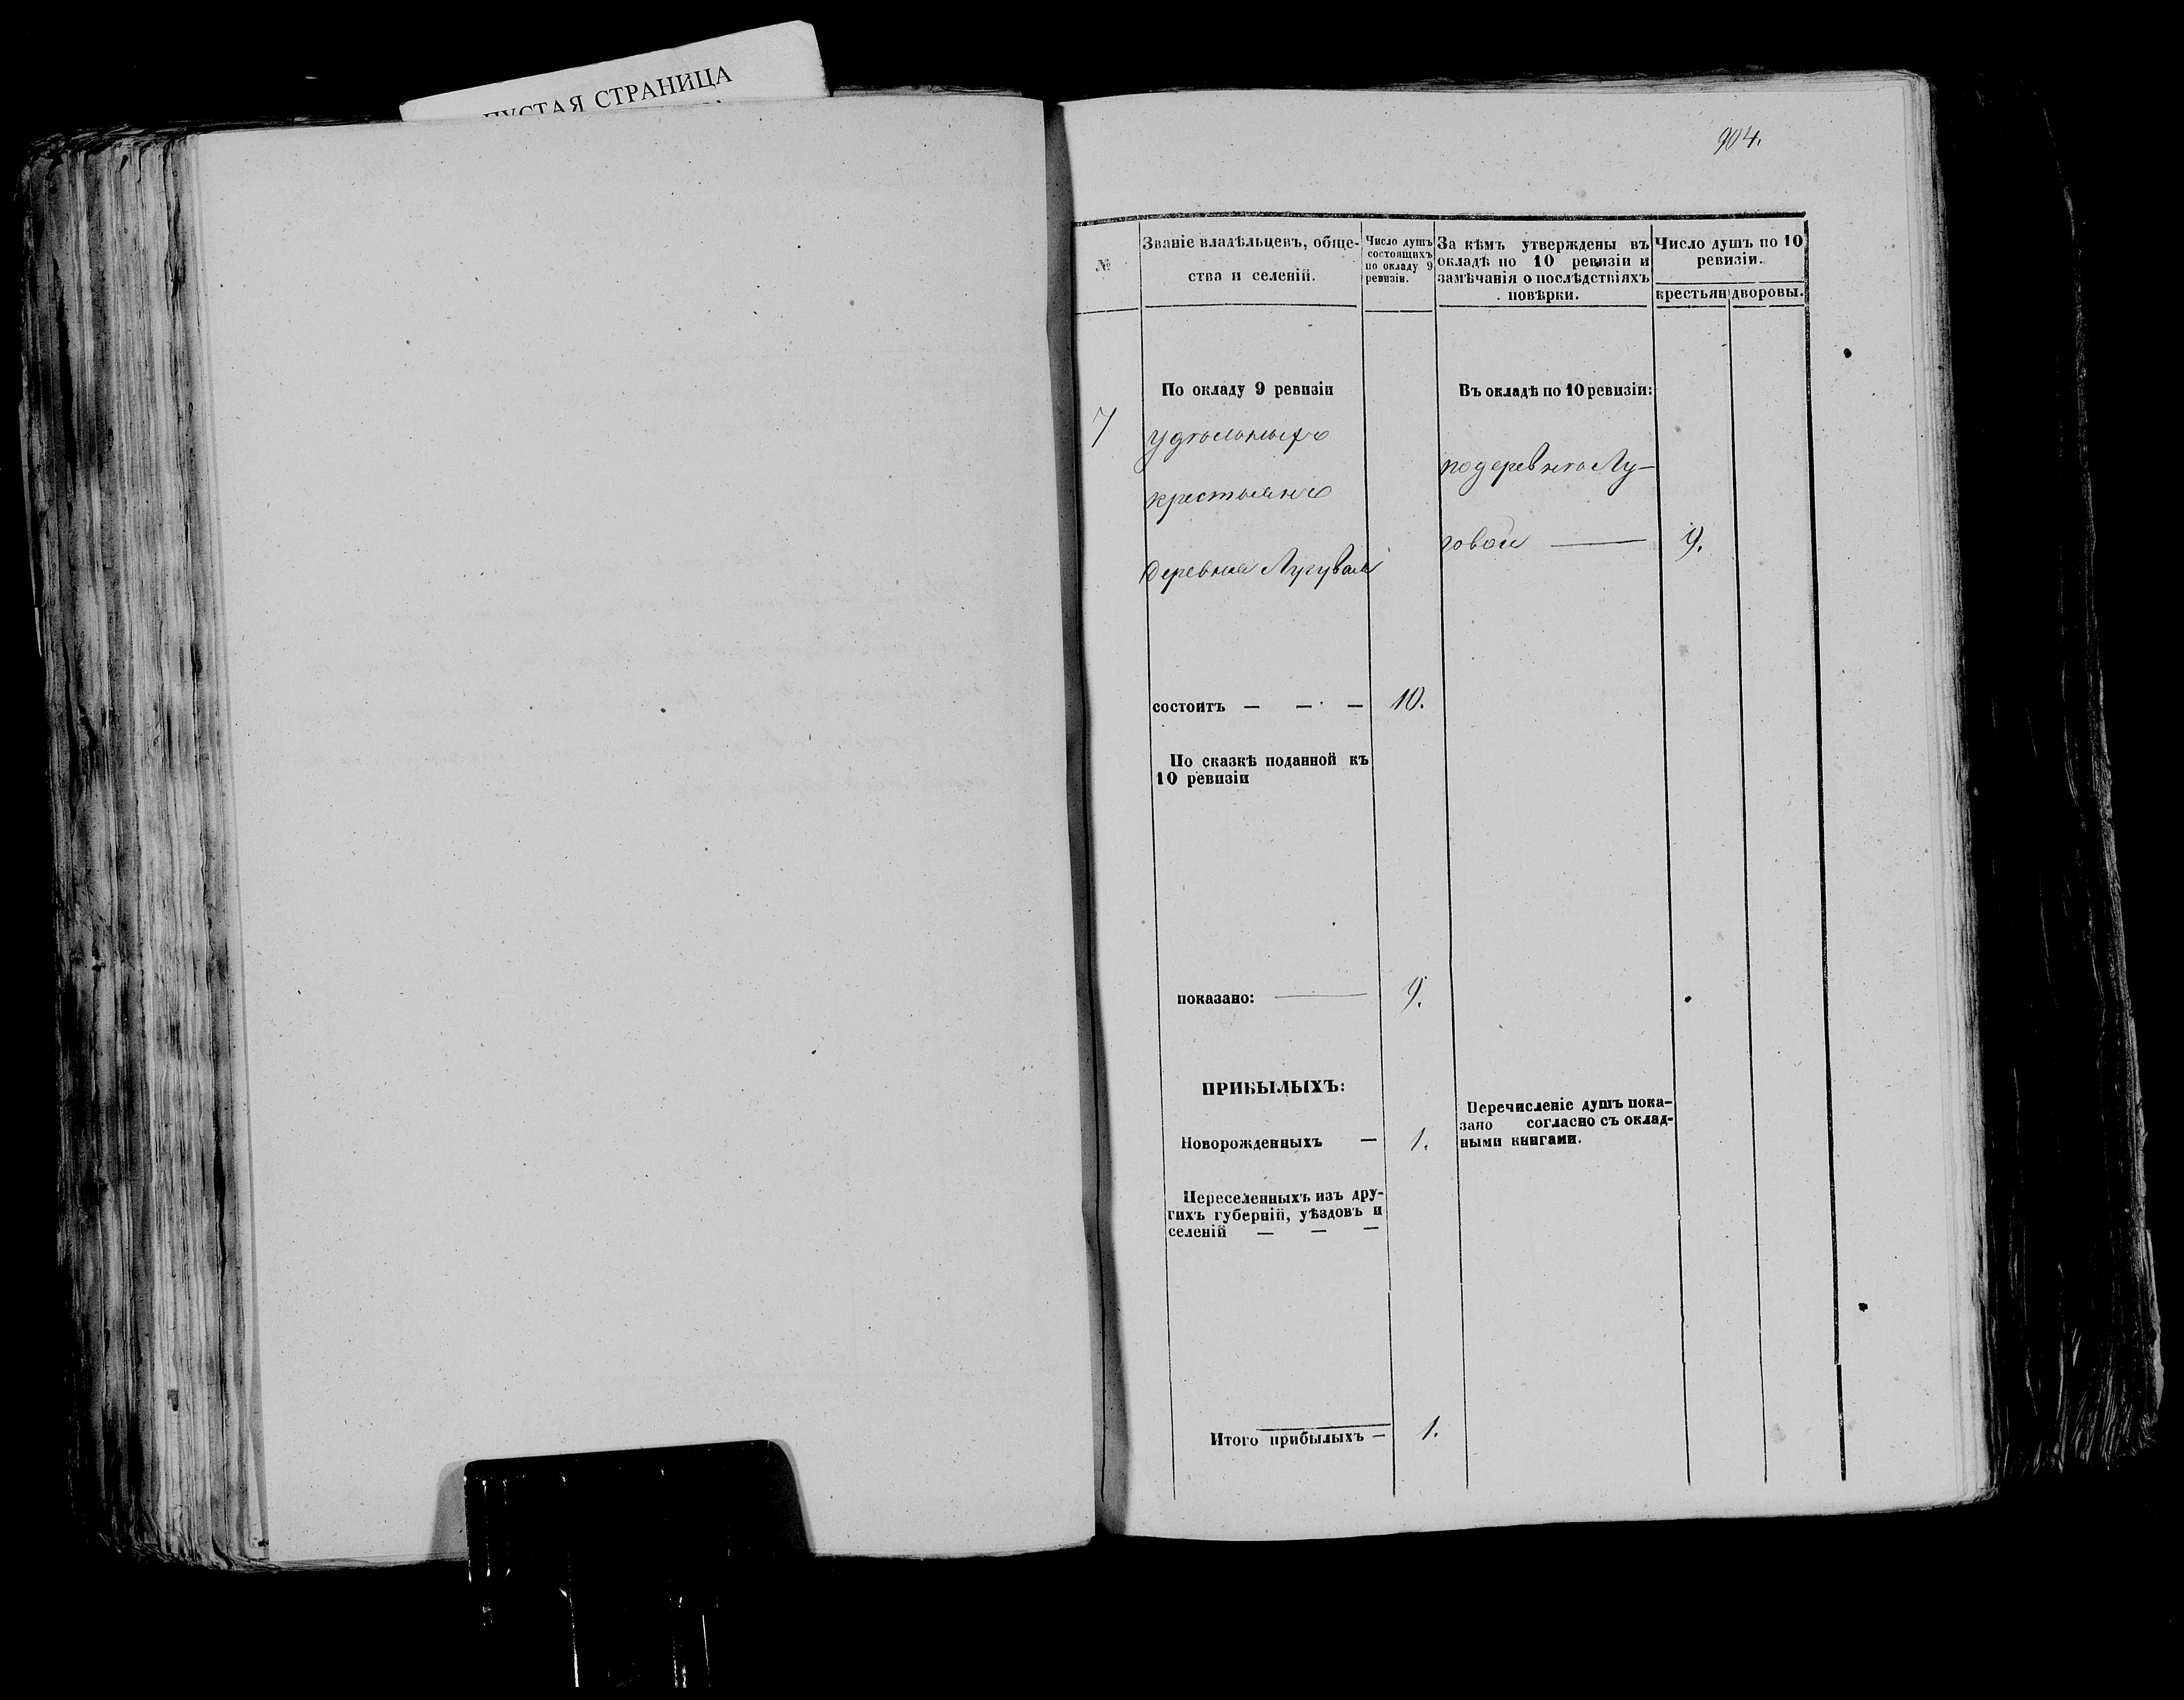 ПУСТАЯ СТРАНИЦА
904.
№
Званіе владѣльцевъ, обще-
ства и селеній.
Число душъ
состоящихъ
по окладу 9
ревизіи.
За кѣмъ утверждены въ
окладѣ по 10 ревизіи и
замѣчанія о послѣдствіяхъ
повѣрки.
Число душъ по 10
ревизіи.
крестьян
дворовы.
По окладу 9 ревизіи
Въ окладѣ по 10 ревизіи:
7
удѣльныхъ
по деревнѣ Лу-
крестьянъ
говой — 9.
деревня
состоитъ — — — 10.
По сказкѣ поданной къ
10 ревизіи
показано: — 9.
ПРИБЫЛЫХЪ:
Перечисленіе душъ пока-
зано согласно съ оклад-
ными книгами.
Новорожденныхъ — 1.
Переселенныхъ изъ дру-
гихъ губерній, уѣздовъ и
селеній — — —
Итого прибылыхъ — 1.